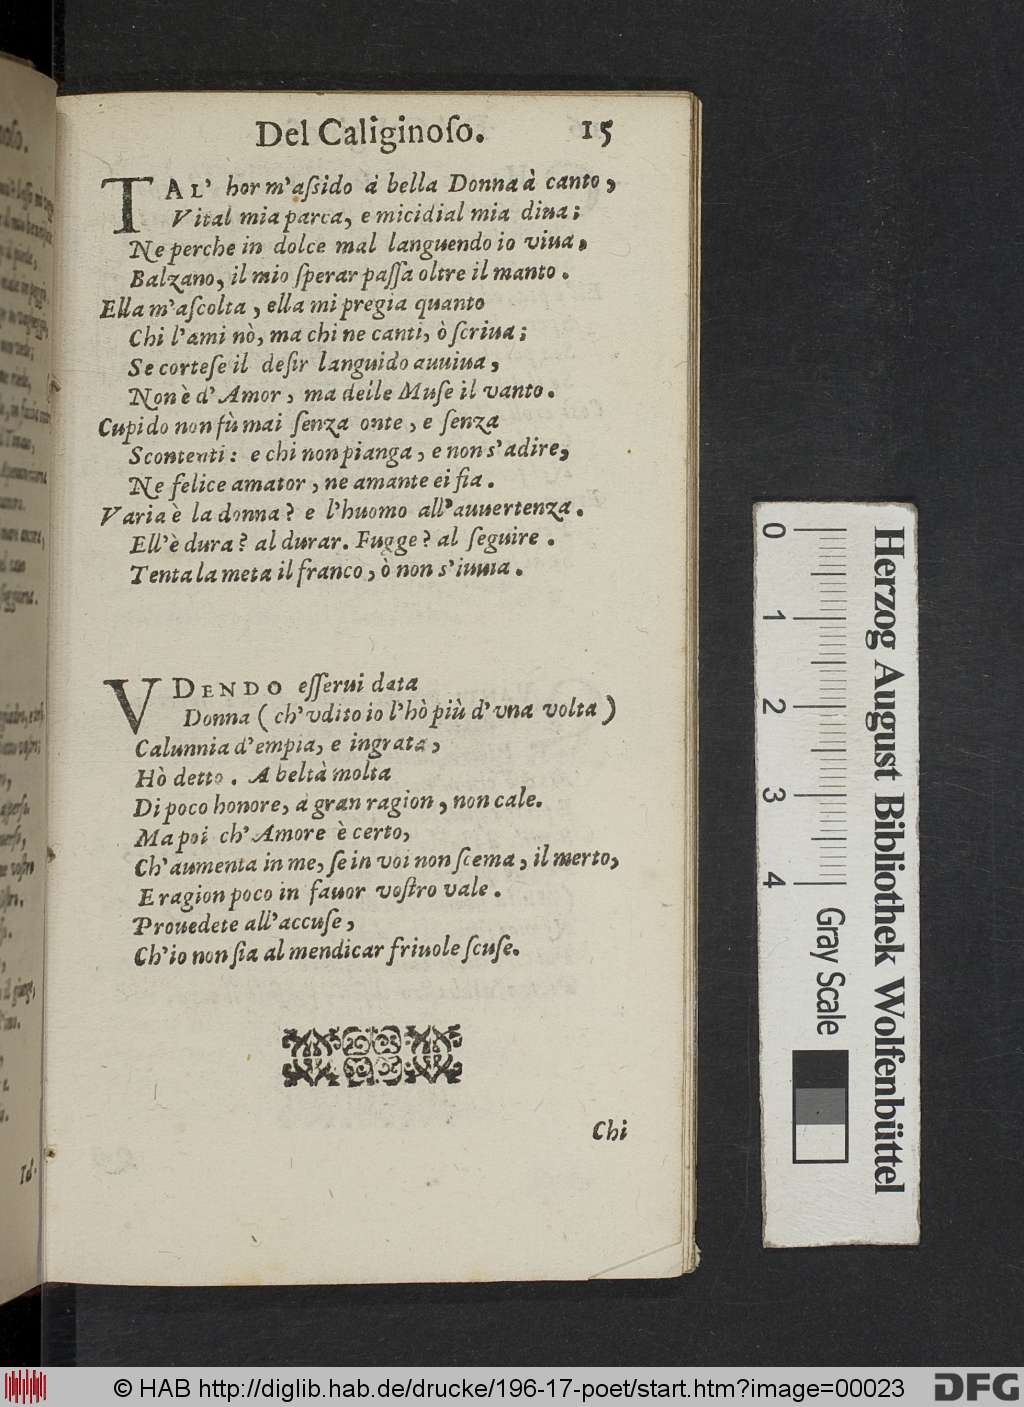 Del Caliginoſo. 15
TAL' hor m'aſsido à bella Donna à canto,
Vital mia parca, e micidial mia diua;
Ne perche in dolce mal languendo io viua,
Balzano, il mio ſperar paſſa oltre il manto.
Ella m'aſcolta, ella mi pregia quanto
Chi l'ami nò, ma chi ne canti, ò ſcriua;
Se corteſe il deſir languido auuiua,
Non è d'Amor, ma delle Muſe il vanto.
Cupido non fù mai ſenza onte, e ſenza
Scontenti: e chi non pianga, e non s'adire,
Ne felice amator, ne amante ei fia.
Varia è la donna? e l'huomo all'auuertenza.
Ell'è dura? al durar. Fugge? al ſeguire.
Tenta la meta il franco, ò non s'inuia.
VDENDO eſſerui data
Donna (ch'vdito io l'hò più d'vna volta)
Calunnia d'empia, e ingrata,
Hò detto. A beltà molta
Di poco honore, a gran ragion, non cale.
Ma poi ch'Amore è certo,
Ch'aumenta in me, ſe in voi non ſcema, il merto,
E ragion poco in fauor voſtro vale.
Prouedete all'accuſe,
Ch'io non ſia al mendicar friuole ſcuſe.
Chi
0 1 2 3 4 Gray Scale
Herzog August Bibliothek Wolfenbüttel
© HAB http://diglib.hab.de/drucke/196-17-poet/start.htm?image=00023
DFG